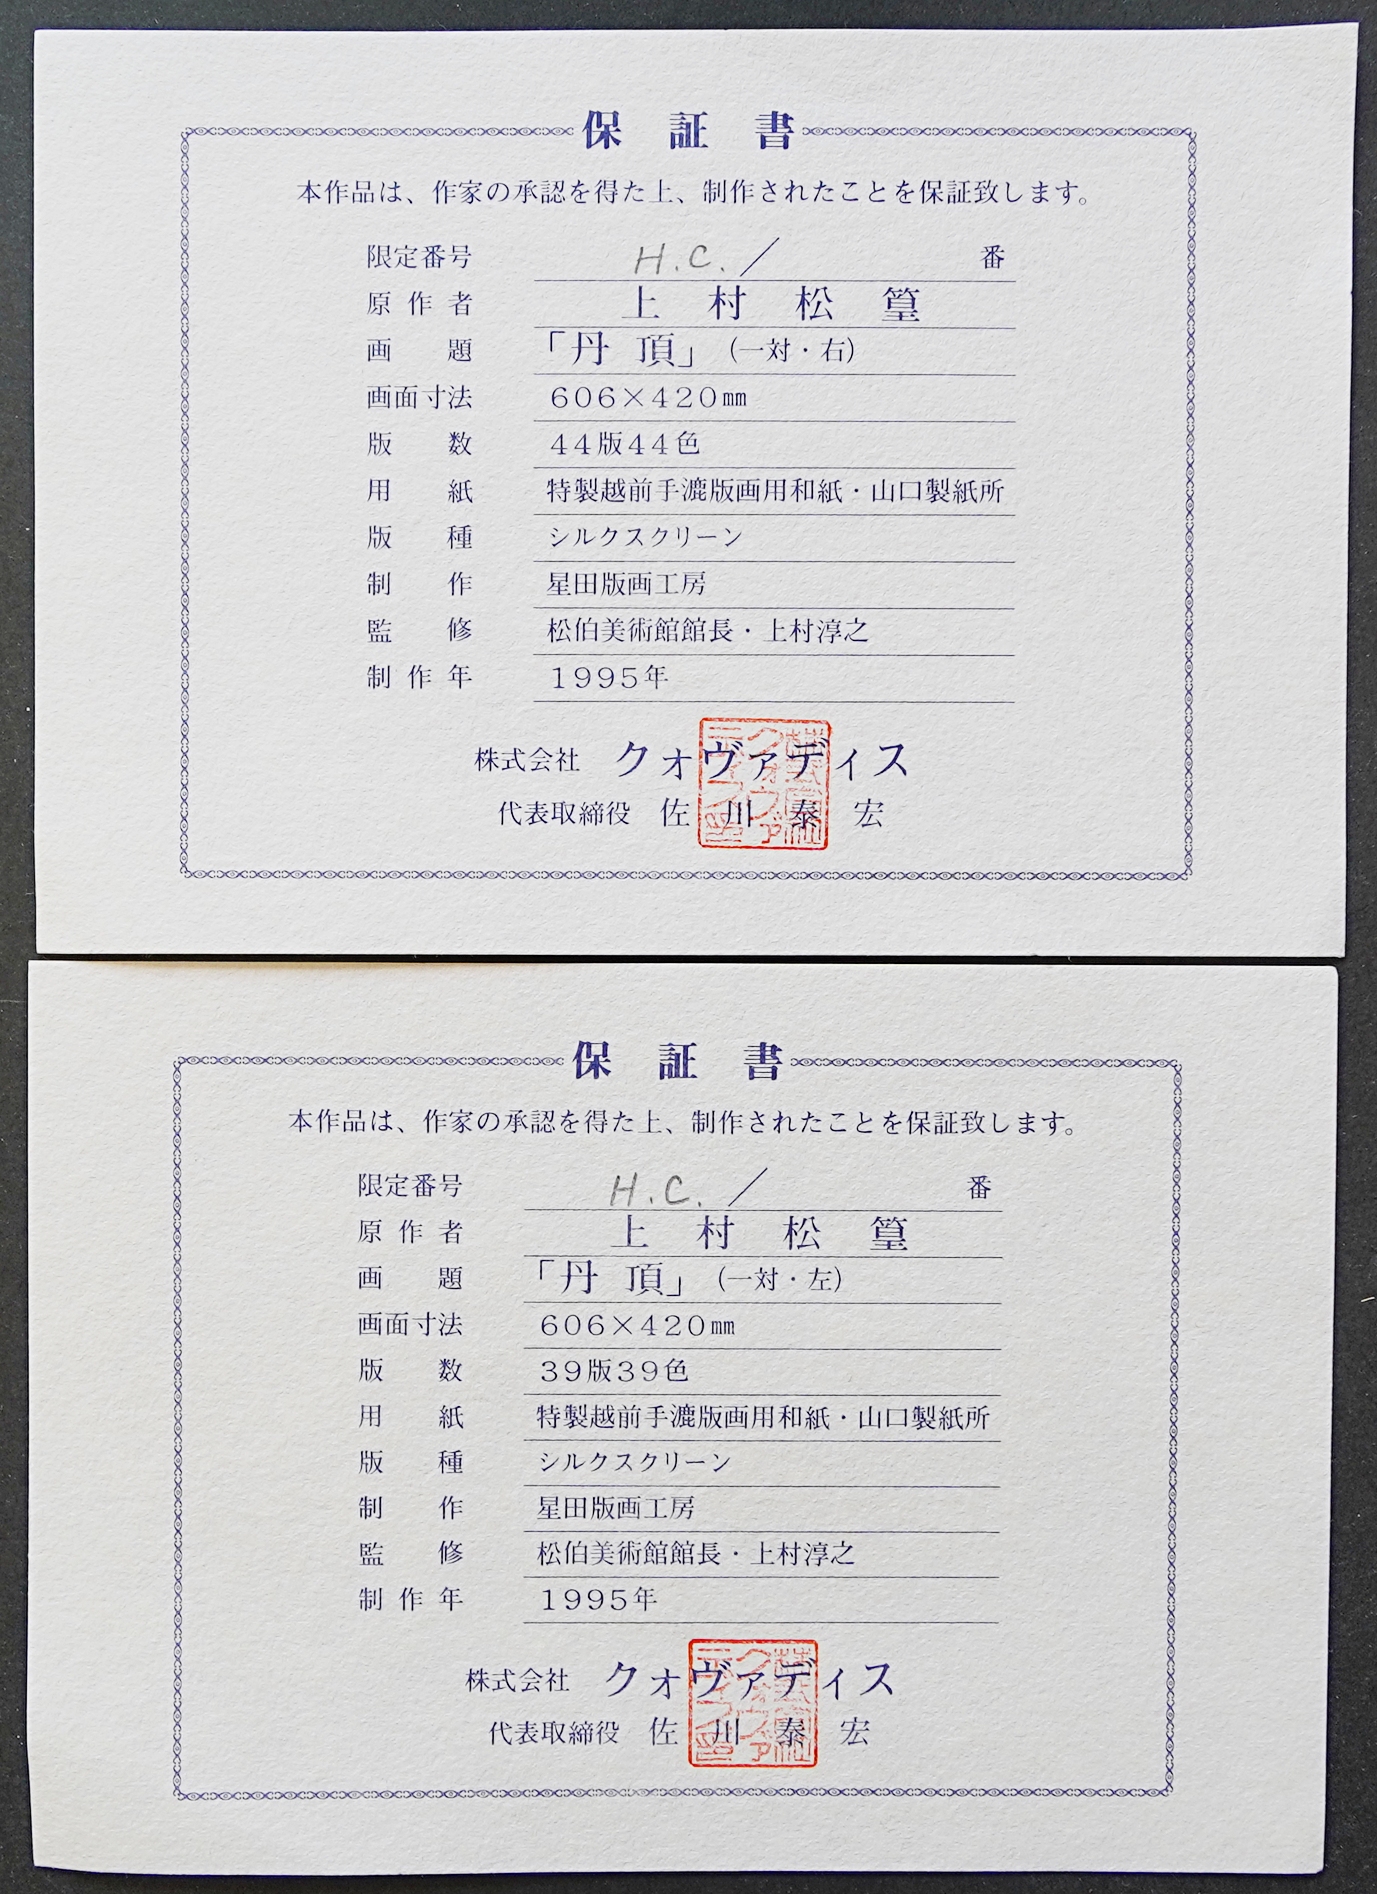 保証書
本作品は、作家の承認を得た上、制作されたことを保証致します。
限定番号 H.C. ／ 番
原作者 上村松篁
画題 「丹頂」（一対・右）
画面寸法 606×420㎜
版数 44版44色
用紙 特製越前手漉版画用和紙・山口製紙所
版種 シルクスクリーン
制作 星田版画工房
監修 松伯美術館館長・上村淳之
制作年 1995年
株式会社 クォヴァディス
代表取締役 佐川泰宏
株式会社クォヴァディス印
保証書
本作品は、作家の承認を得た上、制作されたことを保証致します。
限定番号 H.C. ／ 番
原作者 上村松篁
画題 「丹頂」（一対・左）
画面寸法 606×420㎜
版数 39版39色
用紙 特製越前手漉版画用和紙・山口製紙所
版種 シルクスクリーン
制作 星田版画工房
監修 松伯美術館館長・上村淳之
制作年 1995年
株式会社 クォヴァディス
代表取締役 佐川泰宏
株式会社クォヴァディス印